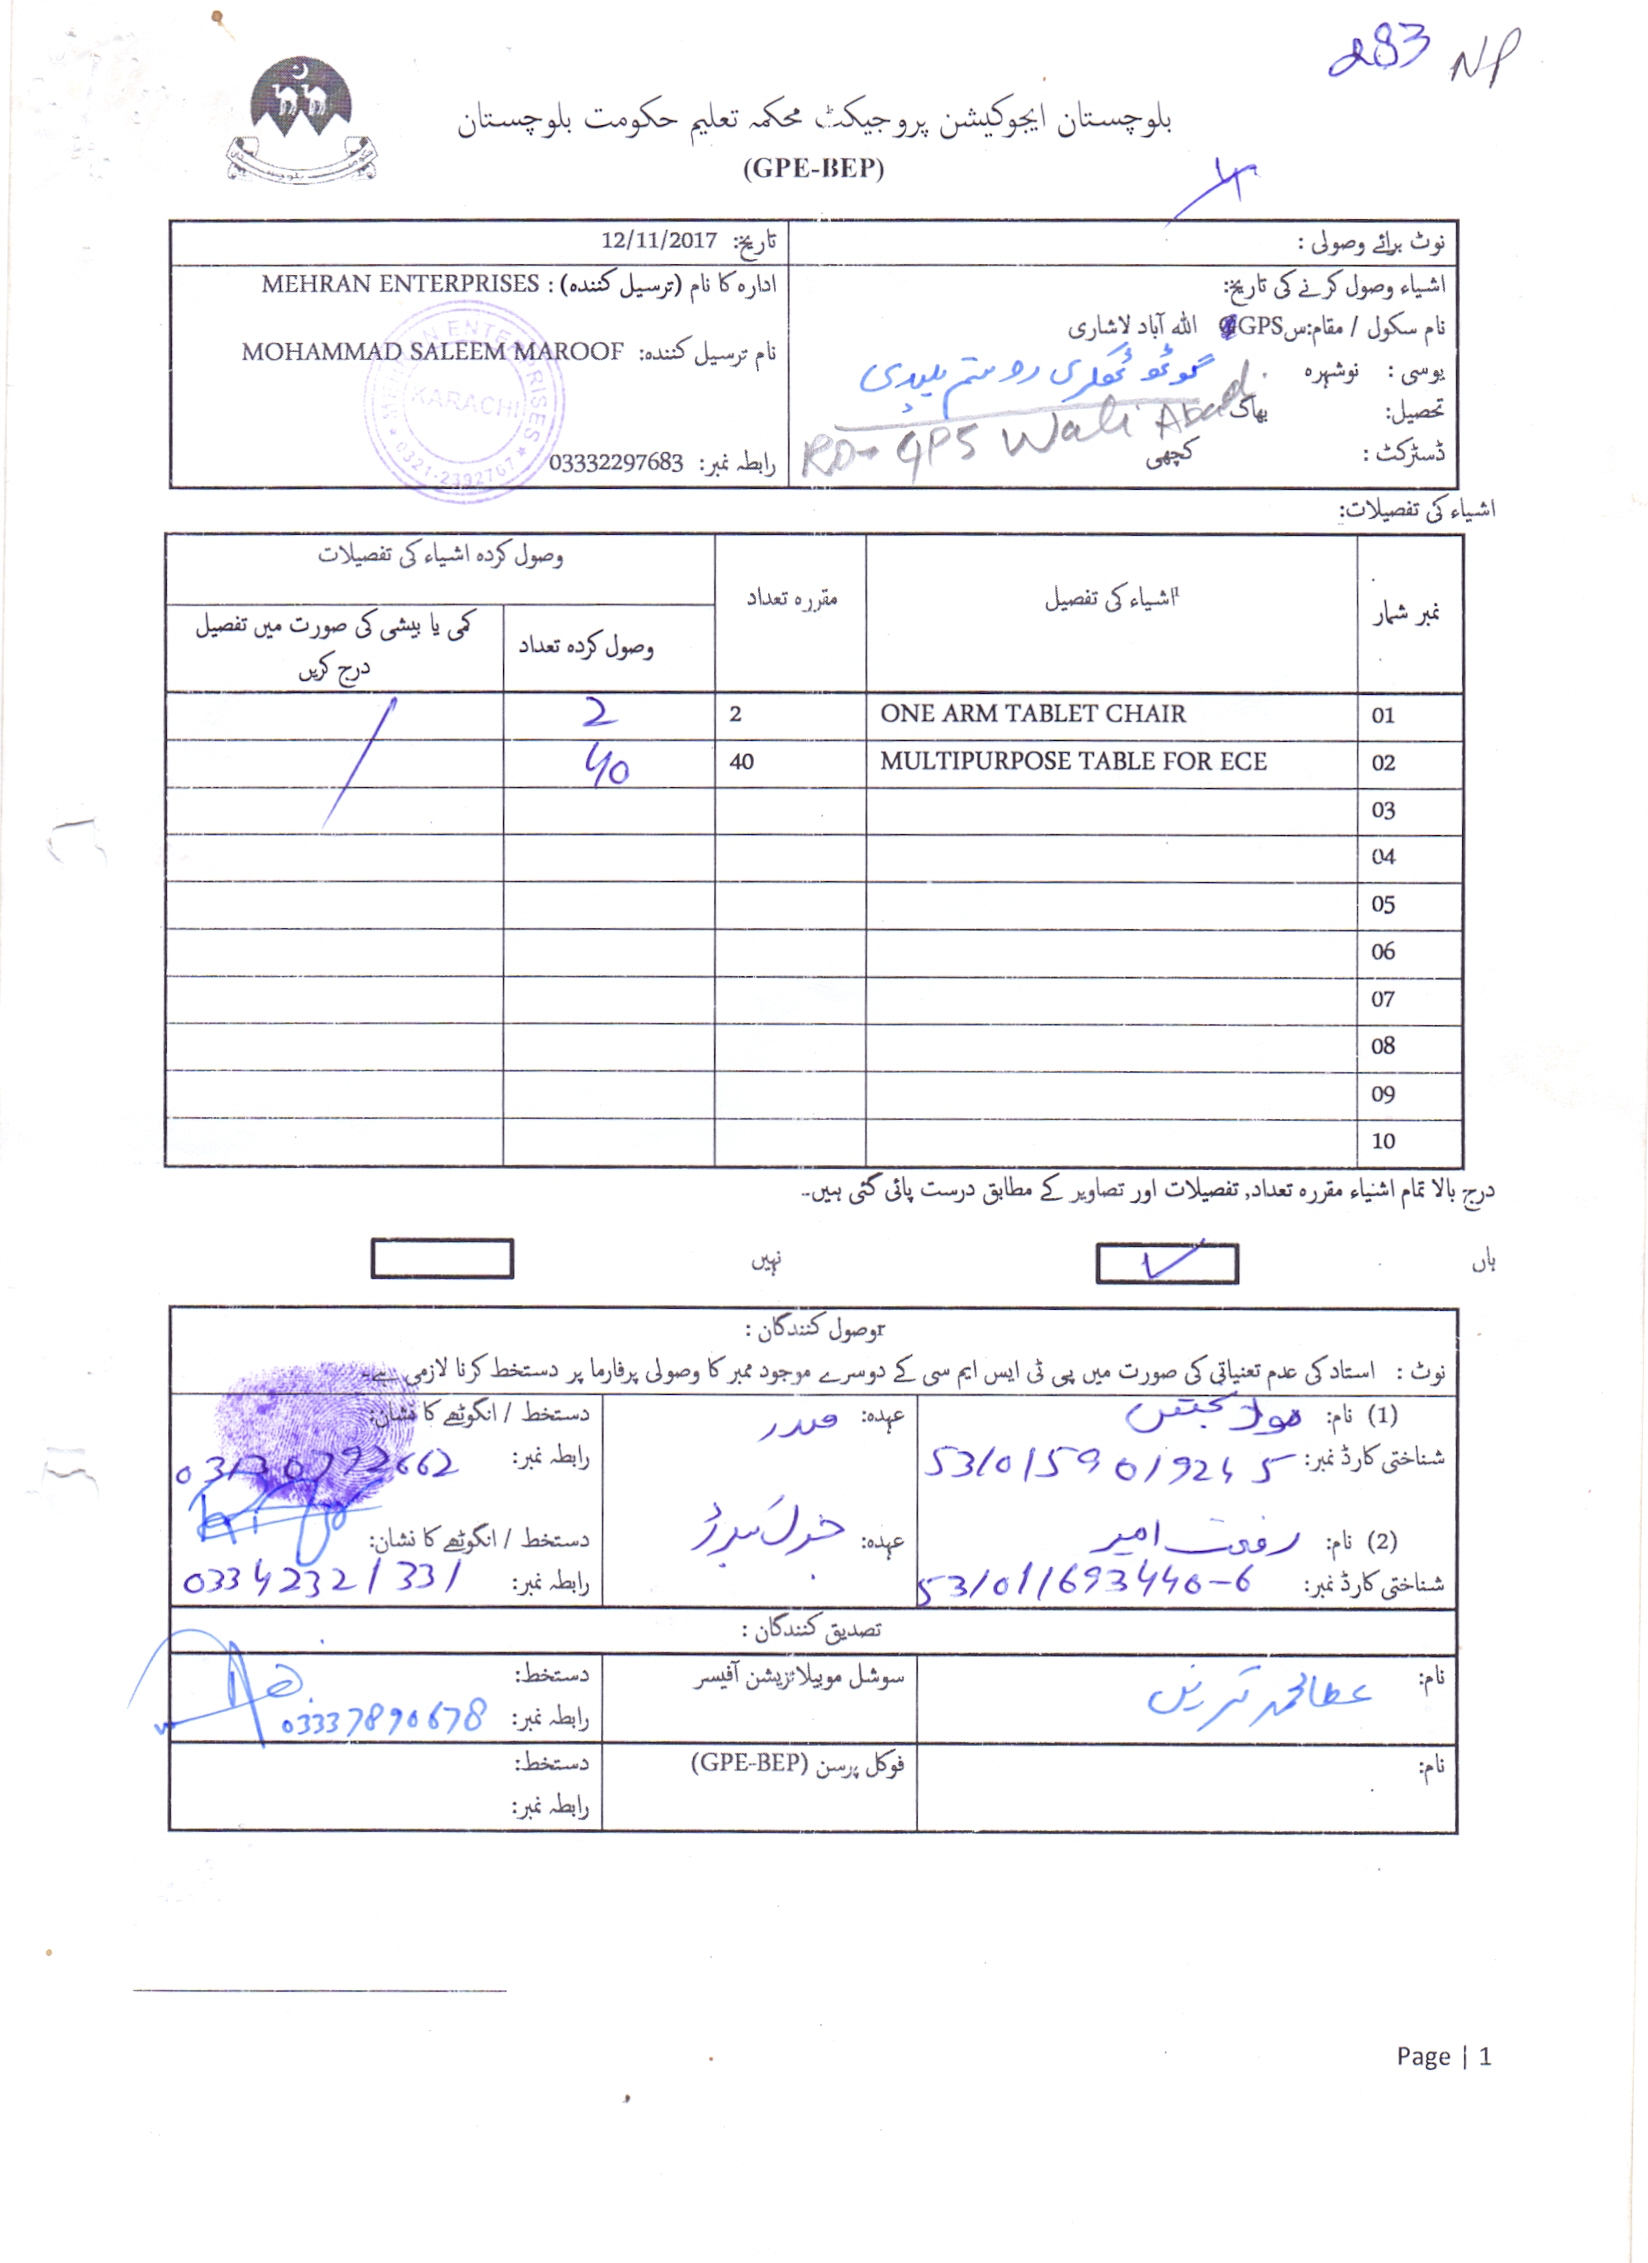 283 NP
بلوچستان ایجوکیشن پروجیکٹ محکمہ تعلیم حکومت بلوچستان
(GPE-BEP)
نوٹ برائے وصولی :
تاریخ: 12/11/2017
اشیاء وصول کرنے کی تاریخ:
ادارہ کا نام (ترسیل کنندہ) : MEHRAN ENTERPRISES
نام سکول / مقام:س GPS الله آباد لاشاری
نام ترسیل کنندہ: MOHAMMAD SALEEM MAROOF
یوسی : نوشہرہ
تحصیل: بھاگ
GPS Wali Abad
ڈسٹرکٹ : کچھی
رابطہ نمبر: 03332297683
MEHRAN ENTERPRISES
KARACHI
0321-2332767
اشیاء کی تفصیلات:
نمبر شمار
اشیاء کی تفصیل
مقررہ تعداد
وصول کردہ اشیاء کی تفصیلات
وصول کردہ تعداد
کمی یا بیشی کی صورت میں تفصیل
درج کریں
01 ONE ARM TABLET CHAIR 2 2
02 MULTIPURPOSE TABLE FOR ECE 40 40
03
04
05
06
07
08
09
10
درج بالا تمام اشیاء مقررہ تعداد, تفصیلات اور تصاویر کے مطابق درست پائی گئی ہیں۔
ہاں ✓ نہیں
rوصول کنندگان :
نوٹ : استاد کی عدم تعنیاتی کی صورت میں پی ٹی ایس ایم سی کے دوسرے موجود ممبر کا وصولی پرفارما پر دستخط کرنا لازمی ہے۔
(1) نام: مولا بخش عہدہ: صدر دستخط / انگوٹھے کا نشان:
شناختی کارڈ نمبر: 5310159019245 رابطہ نمبر: 03130792662
(2) نام: رفعت امیر عہدہ: دستخط / انگوٹھے کا نشان:
شناختی کارڈ نمبر: 531011693440-6 رابطہ نمبر: 03342321331
تصدیق کنندگان :
نام: عطا محمد سوشل موبیلائزیشن آفیسر دستخط:
رابطہ نمبر: 03337890678
نام: فوکل پرسن (GPE-BEP) دستخط:
رابطہ نمبر:
Page | 1